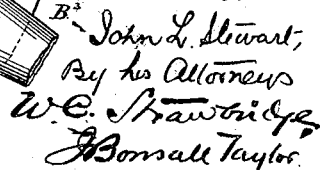 B.³
John L. Stewart,
By his Attorneys
W. C. Strawbridge,
J Bonsall Taylor.